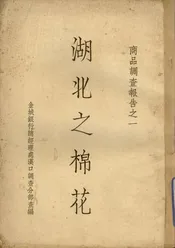 商品調查報告之一
湖北之棉花
金城銀行總經理處漢口調查分部查編